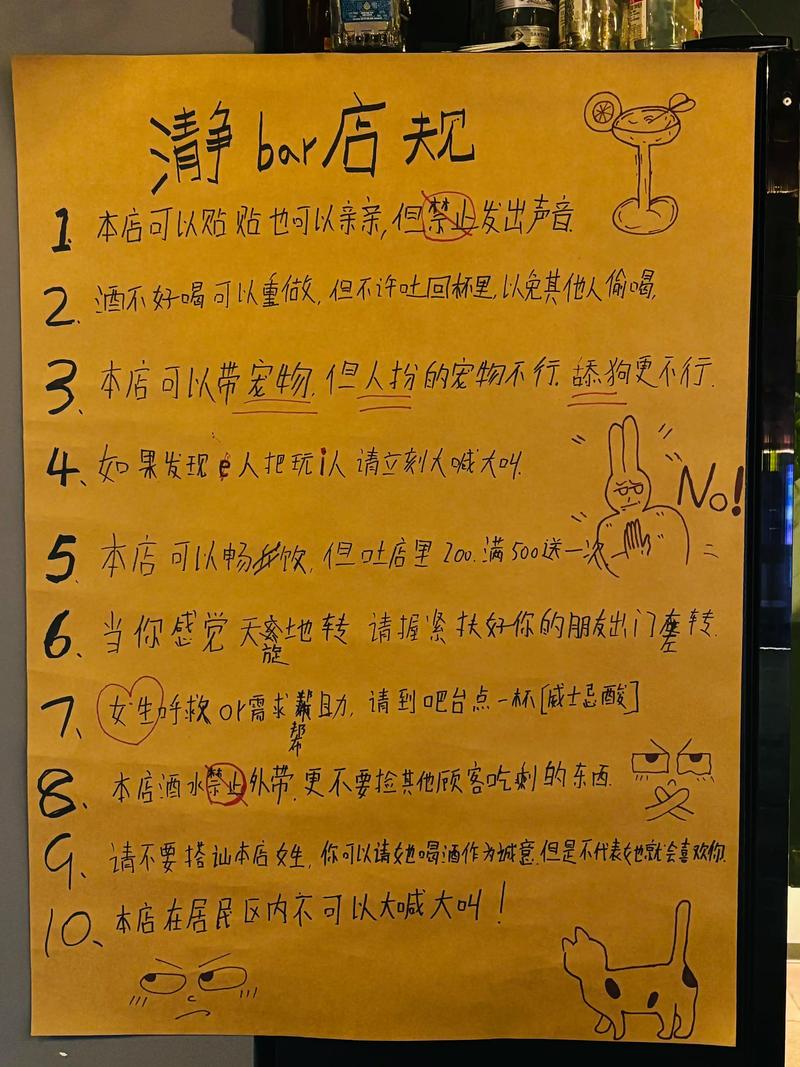 瀞bar店规
1. 本店可以贴贴也可以亲亲,但禁止发出声音.
2. 酒不好喝可以重做,但不许吐回杯里,以免其他人偷喝,
3、本店可以带宠物.但人扮的宠物不行.舔狗更不行.
4、如果发现e人把玩i人 请立刻大喊大叫.
No!
5、本店可以畅饮,但吐店里200.满500送一次
6、当你感觉天旋地转 请握紧扶好你的朋友出门左转.
7、女生呼救or需求帮助,请到吧台点一杯[威士忌酸]
8、本店酒水禁止外带.更不要捡其他顾客吃剩的东西.
9、请不要搭讪本店女生,你可以请她喝酒作为诚意.但是不代表她就会喜欢你.
10、本店在居民区内不可以大喊大叫!